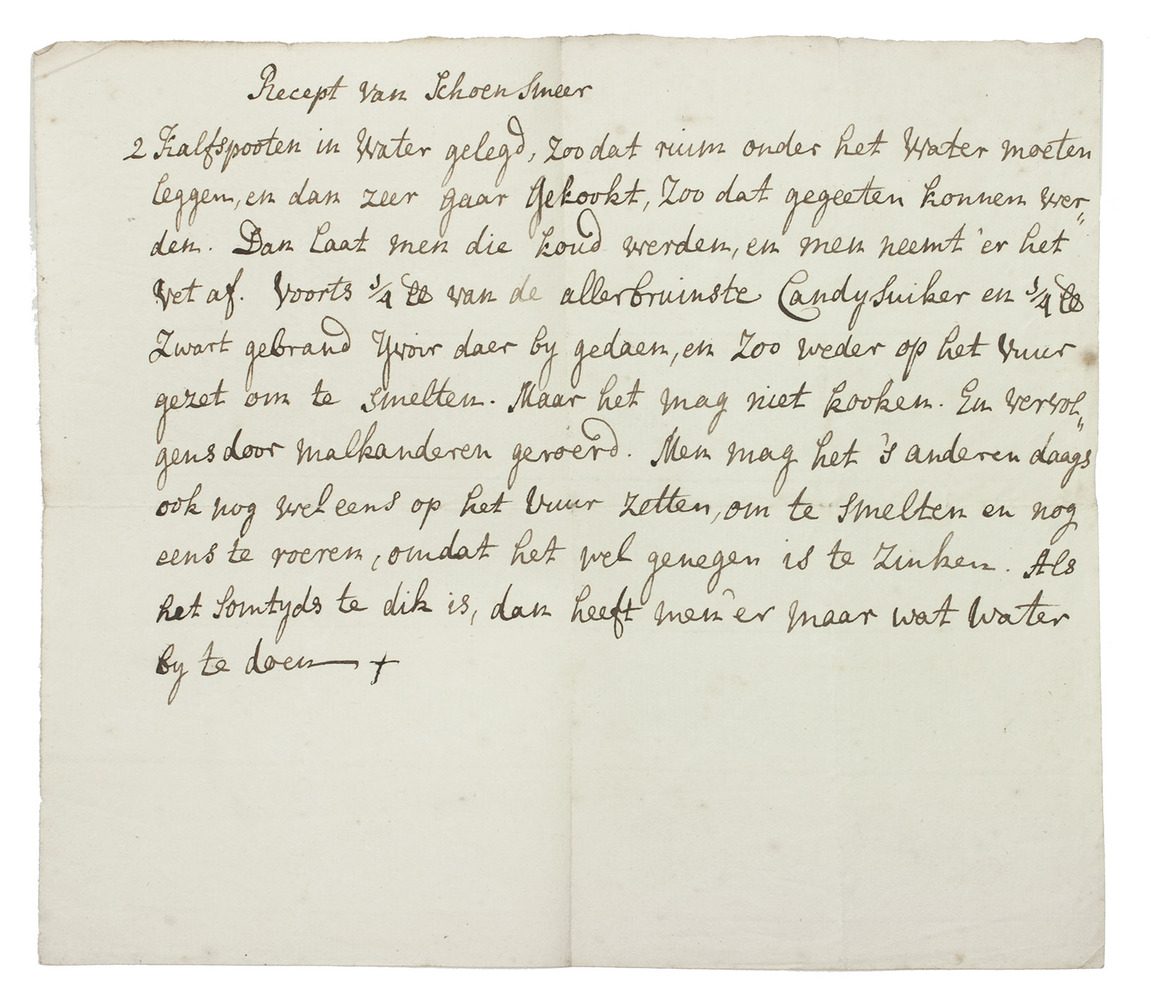 Recept van Schoen Smeer
2 Kalfspooten in Water gelegd, zoo dat ruim onder het Water moeten
leggen, en dan zeer gaar Gekookt, Zoo dat gegeeten konnen wer„
den. Dan laat men die koud werden, en men neemt 'er het
Vet af. Voorts ¾ ℔ van de allerbruinste Candy Suiker en ¾ ℔
Zwart gebrand Yvoir daer by gedaen, en Zoo weder op het Vuur
gezet om te smelten. Maar het mag niet kooken. En vervol„
gens door malkanderen geroerd. Men mag het 's anderen daags
ook nog wel eens op het Vuur zetten, om te smelten en nog
eens te roeren, omdat het wel genegen is te Zinken. Als
het Somtyds te dik is, dan heeft men 'er maar wat Water
by te doen